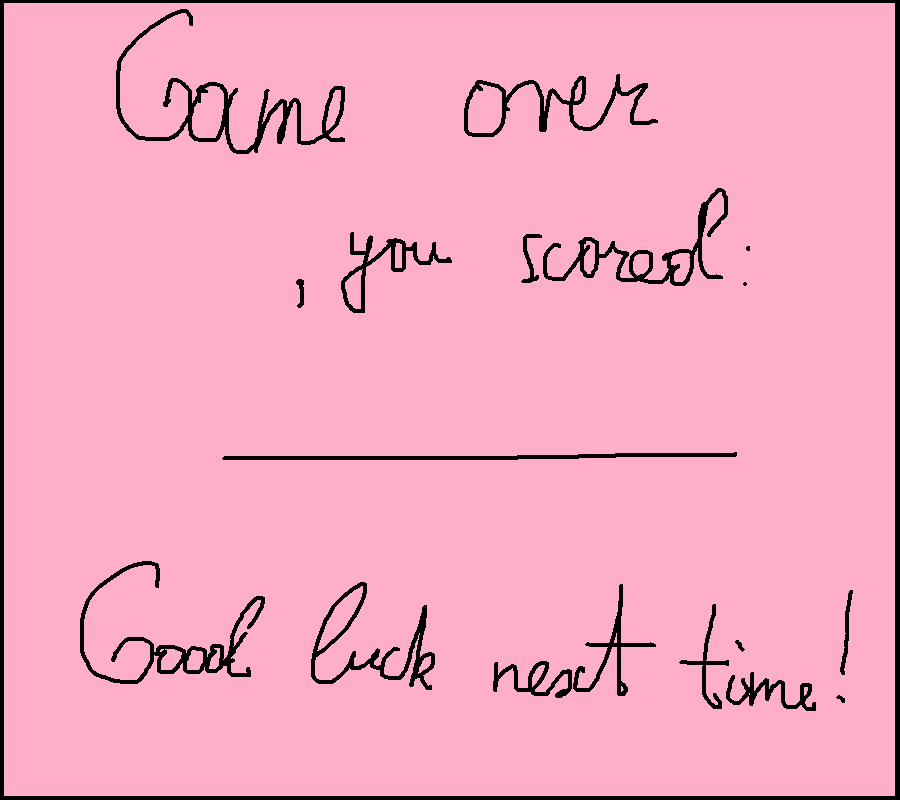 Game over
, you scored:
Good luck next time!